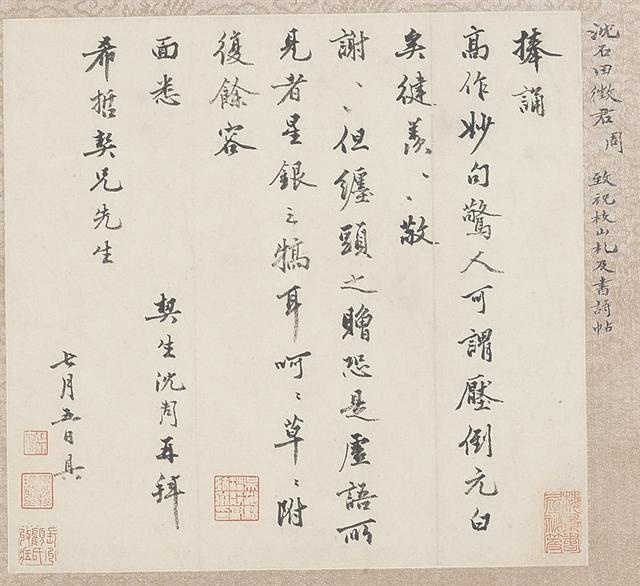 沈石田徵君周 致祝枝山札及書詩帖
捧誦
高作妙句驚人可謂壓倒元白
矣健羨〻敬
謝〻但纏頭之贈恐是虛語所
見者星銀之犒耳呵〻草〻附
復餘容
面悉
希哲契兄先生
契生沈周再拜
七月五日具